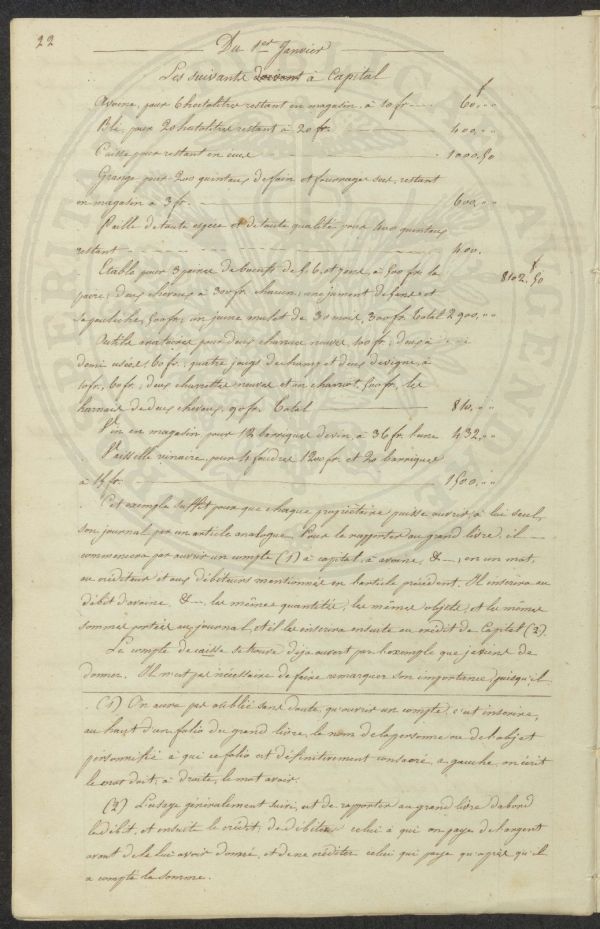 22
Du 1er Janvier
Les suivants doivent à Capital
Avoine, pour 6 hectolitres restant en magasin, à 10 fr 60,,,
Blé, pour 20 hectolitres restant à 20 fr. 400,,,
Caisse pour restant en icine 1000,50
Grange pour 200 quintaux de foin et fourrages secs, restant
en magasin à 3 fr. 600,,,
Paille de toute espèce et de toute qualité pour 400 quintaux
restant 400.
Etable pour 3 paires de boeufs de f. 6. et 7 ans, à 500 fr. la 8102,50
paire; deux chevaux à 300 fr. chacun; une jument de 9 ans et
sa pouliche, 500 fr; un jeune mulet de 30 mois, 300 fr. Total 2900,,,
Outils aratoires pour deux charrues neuves, 100 fr; deux à
demi usées, 60 fr; quatre jougs de champ et deux de vigne, à
10 fr, 60 fr; deux charrettes neuves et un charriot, 500 fr, les
harnais de deux chevaux, 90 fr. Total 810,,,
Vin en magasin pour 12 barriques de vin, à 36 fr. l'une 432,,,
Vaisselle vinaire, pour 4 foudres 1200 fr. et 20 barriques
à 15 fr. 1500,,,
Cet exemple suffit pour que chaque propriétaire puisse ouvrir, à lui seul,
son journal par un article analogue. Pour le rapporter au grand livre, il
commencera par ouvrir un compte (1) à capital, à avoine, &, en un mot,
au créditeur et aux débiteurs mentionnés en l'article précédent. Il inscrira au
débit d'avoine, &, les mêmes quantités, les mêmes objets, et les mêmes
sommes portées au journal, et il les inscrira ensuite au crédit de Capital (2)
Le compte de caisse se trouve déjà ouvert par l'exemple que je viens de
donner. Il n'est pas nécessaire de faire remarquer son importance, puisqu'il
(1) On aura pas oublié sans doute, qu'ouvrir un compte, c'est inscrire,
au haut d'un folio du grand livre, le nom de la personne ou de l'objet
personnifié à qui ce folio est définitivement consacré, a gauche, on écrit
le mot doit, à droite, le mot avoir.
(2) L'usage généralement suivi, est de rapporter au grand livre d'abord
le débit, et ensuite le crédit, de débiter celui à qui on paye de l'argent
avant de le lui avoir donné, et de ne créditer celui qui paye qu'après qu'il
a compté la somme.